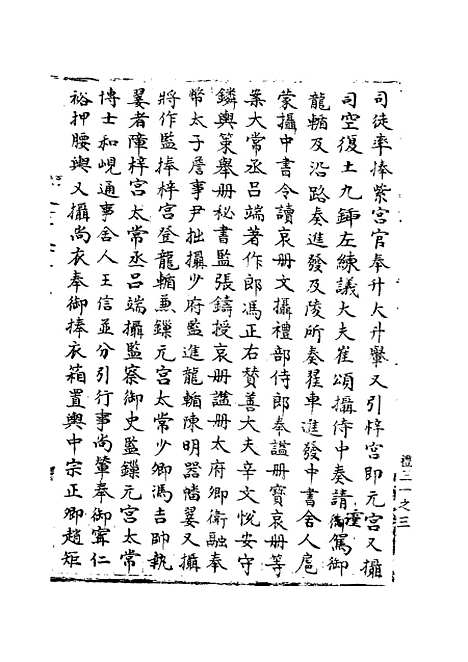 司徒率捧紫宫官奉升大升轝又引梓宫即元宫又攝
司空復土九鍤左練議大夫崔頌攝侍中奏請御駕御
龍輴及沿路奏進發及陵所奏㞐車進發中書舍人扈
蒙攝中書令讀哀册文攝禮部侍郎奉謚册寶哀册等
案大常丞吕端著作郎馮正右賛善大夫辛文悦安守
鏻輿䇿舉册秘書監張鑄授哀册謚册太府卿衛融奉
幣太子詹事尹拙攝少府監進龍輴陳明器幡翣又攝
將作監捧梓宫登龍輴兼鏁元宫太常少卿馮吉帥執
翣者障梓宫太常丞吕端攝監察御史監鏁元宫太常
博士和峴通事舍人王信並分引行事尚輦奉御甯仁
裕押腰輿又攝尚衣奉御捧衣箱置輿中宗正卿趙矩
禮三一之三